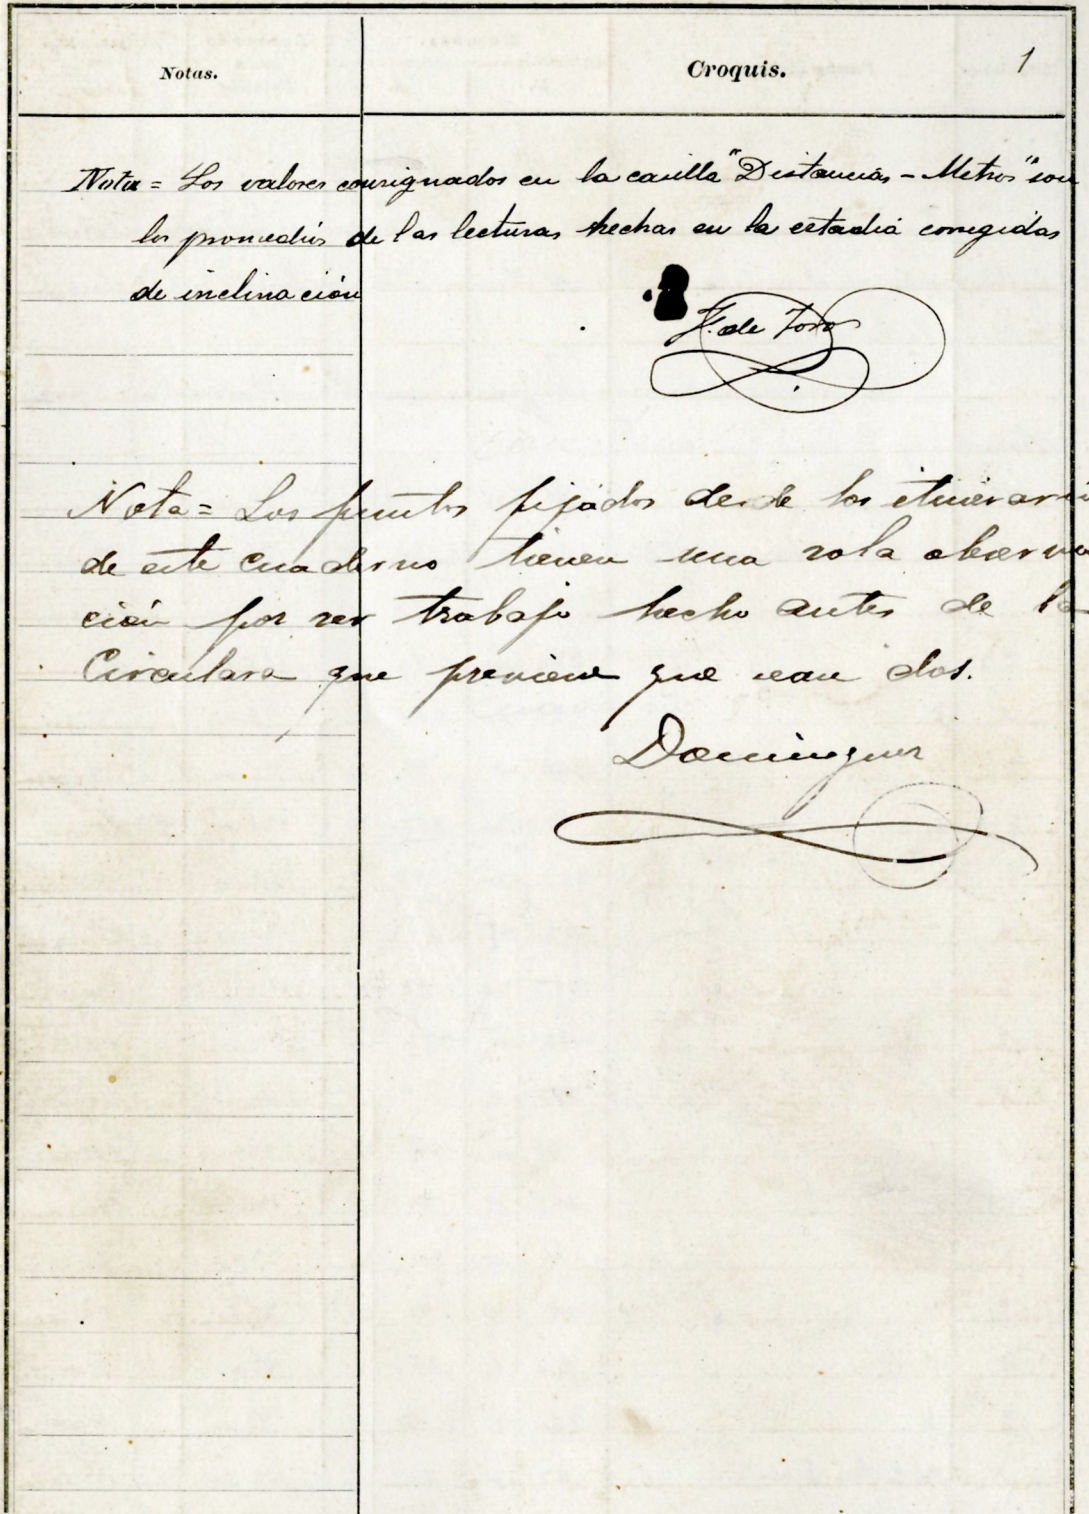 Notas.
Croquis.
1
Nota = Los valores consignados en la casilla "Distancias - Metros" son
los promedios de las lecturas hechas en la estadia corregidas
de inclinación
F. de Toro
Nota = Los puntos fijados desde los itinerario
de este cuaderno tienen una sola observa
ción por ser trabajo hecho antes de la
Circulara que previene que sean dos.
Dominguez